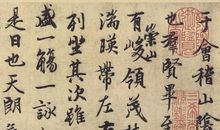 于會稽山陰
也羣賢畢至
有崇山峻領茂
湍暎帶左
列坐其次雖
盛一觴一詠
是日也天朗